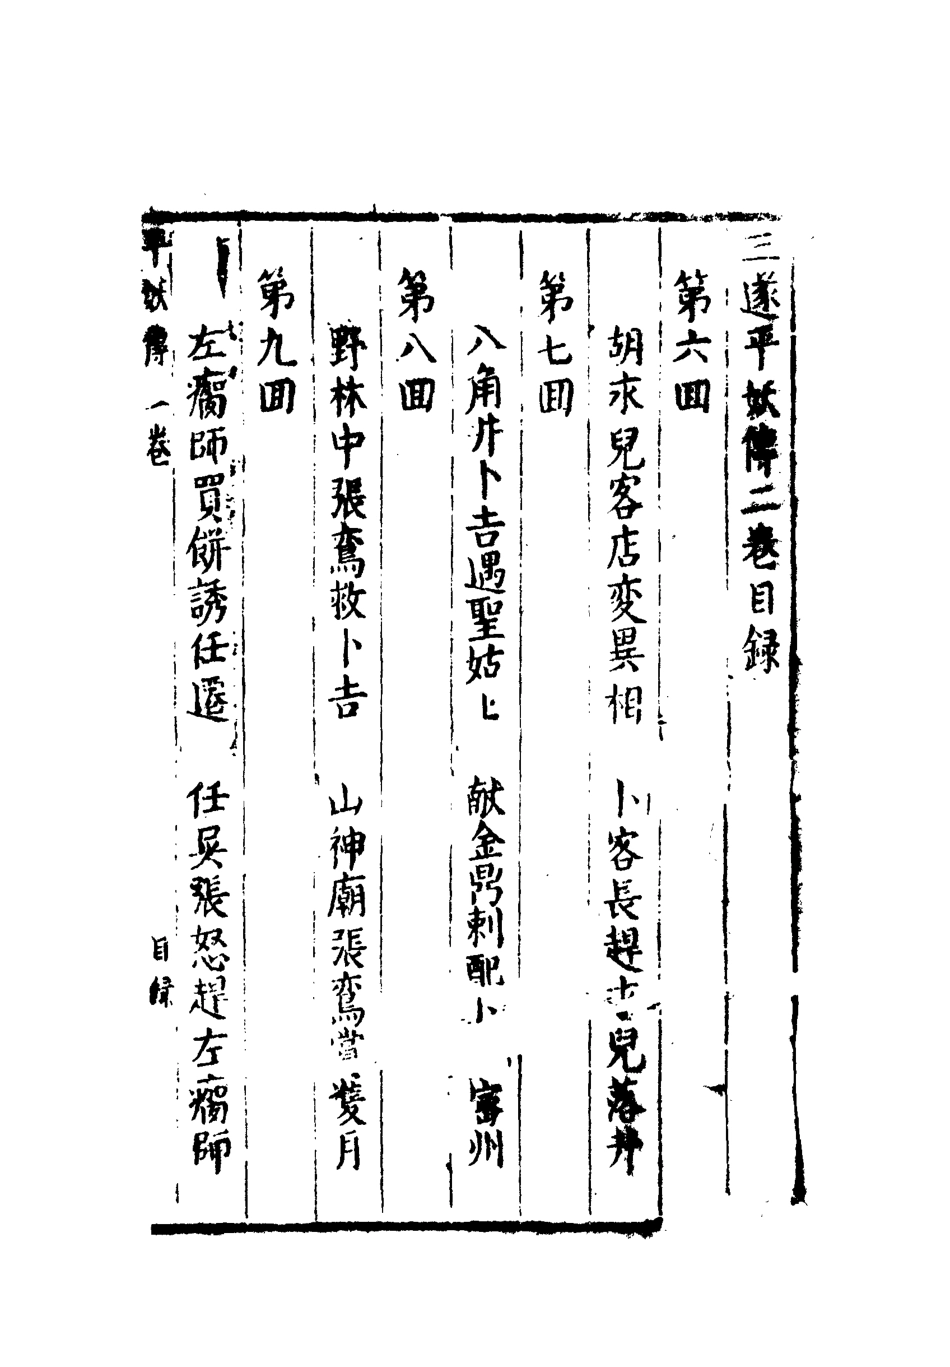 三遂平妖傳二卷目録
第六囬
胡永兒客店変異相 卜客長趕 兒落井
第七囬
八角井卜吉遇聖姑上 献金鼎刺配卜 密州
第八囬
野林中張鸞救卜吉 山神廟張鸞當雙月
第九囬
左瘸師買餅誘任遷 任吳張怒趕左瘸師
平妖傳 一卷 目録